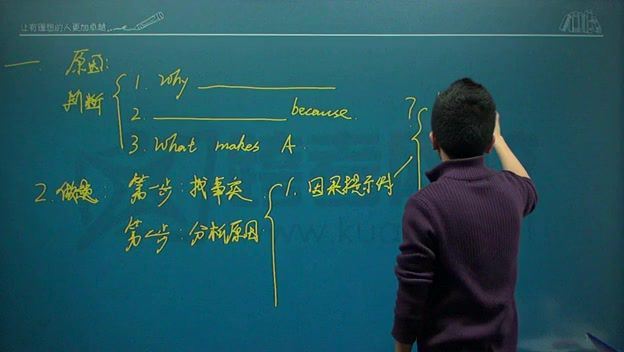 让有理想的人更加卓越
一、原因:
判断
1. Why ________
2. ________ because.
3. What makes A.
2. 做题:
第一步:找事实
第二步:分析原因
1. 因果提示词
?